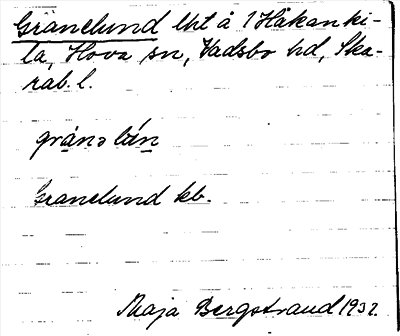 Gränelund lht å 1 Håkanki-
la, Hova sn, Vadsbo hd, Ska-
rab. l.
Granelund kb.
Maja Bergstrand 1932.